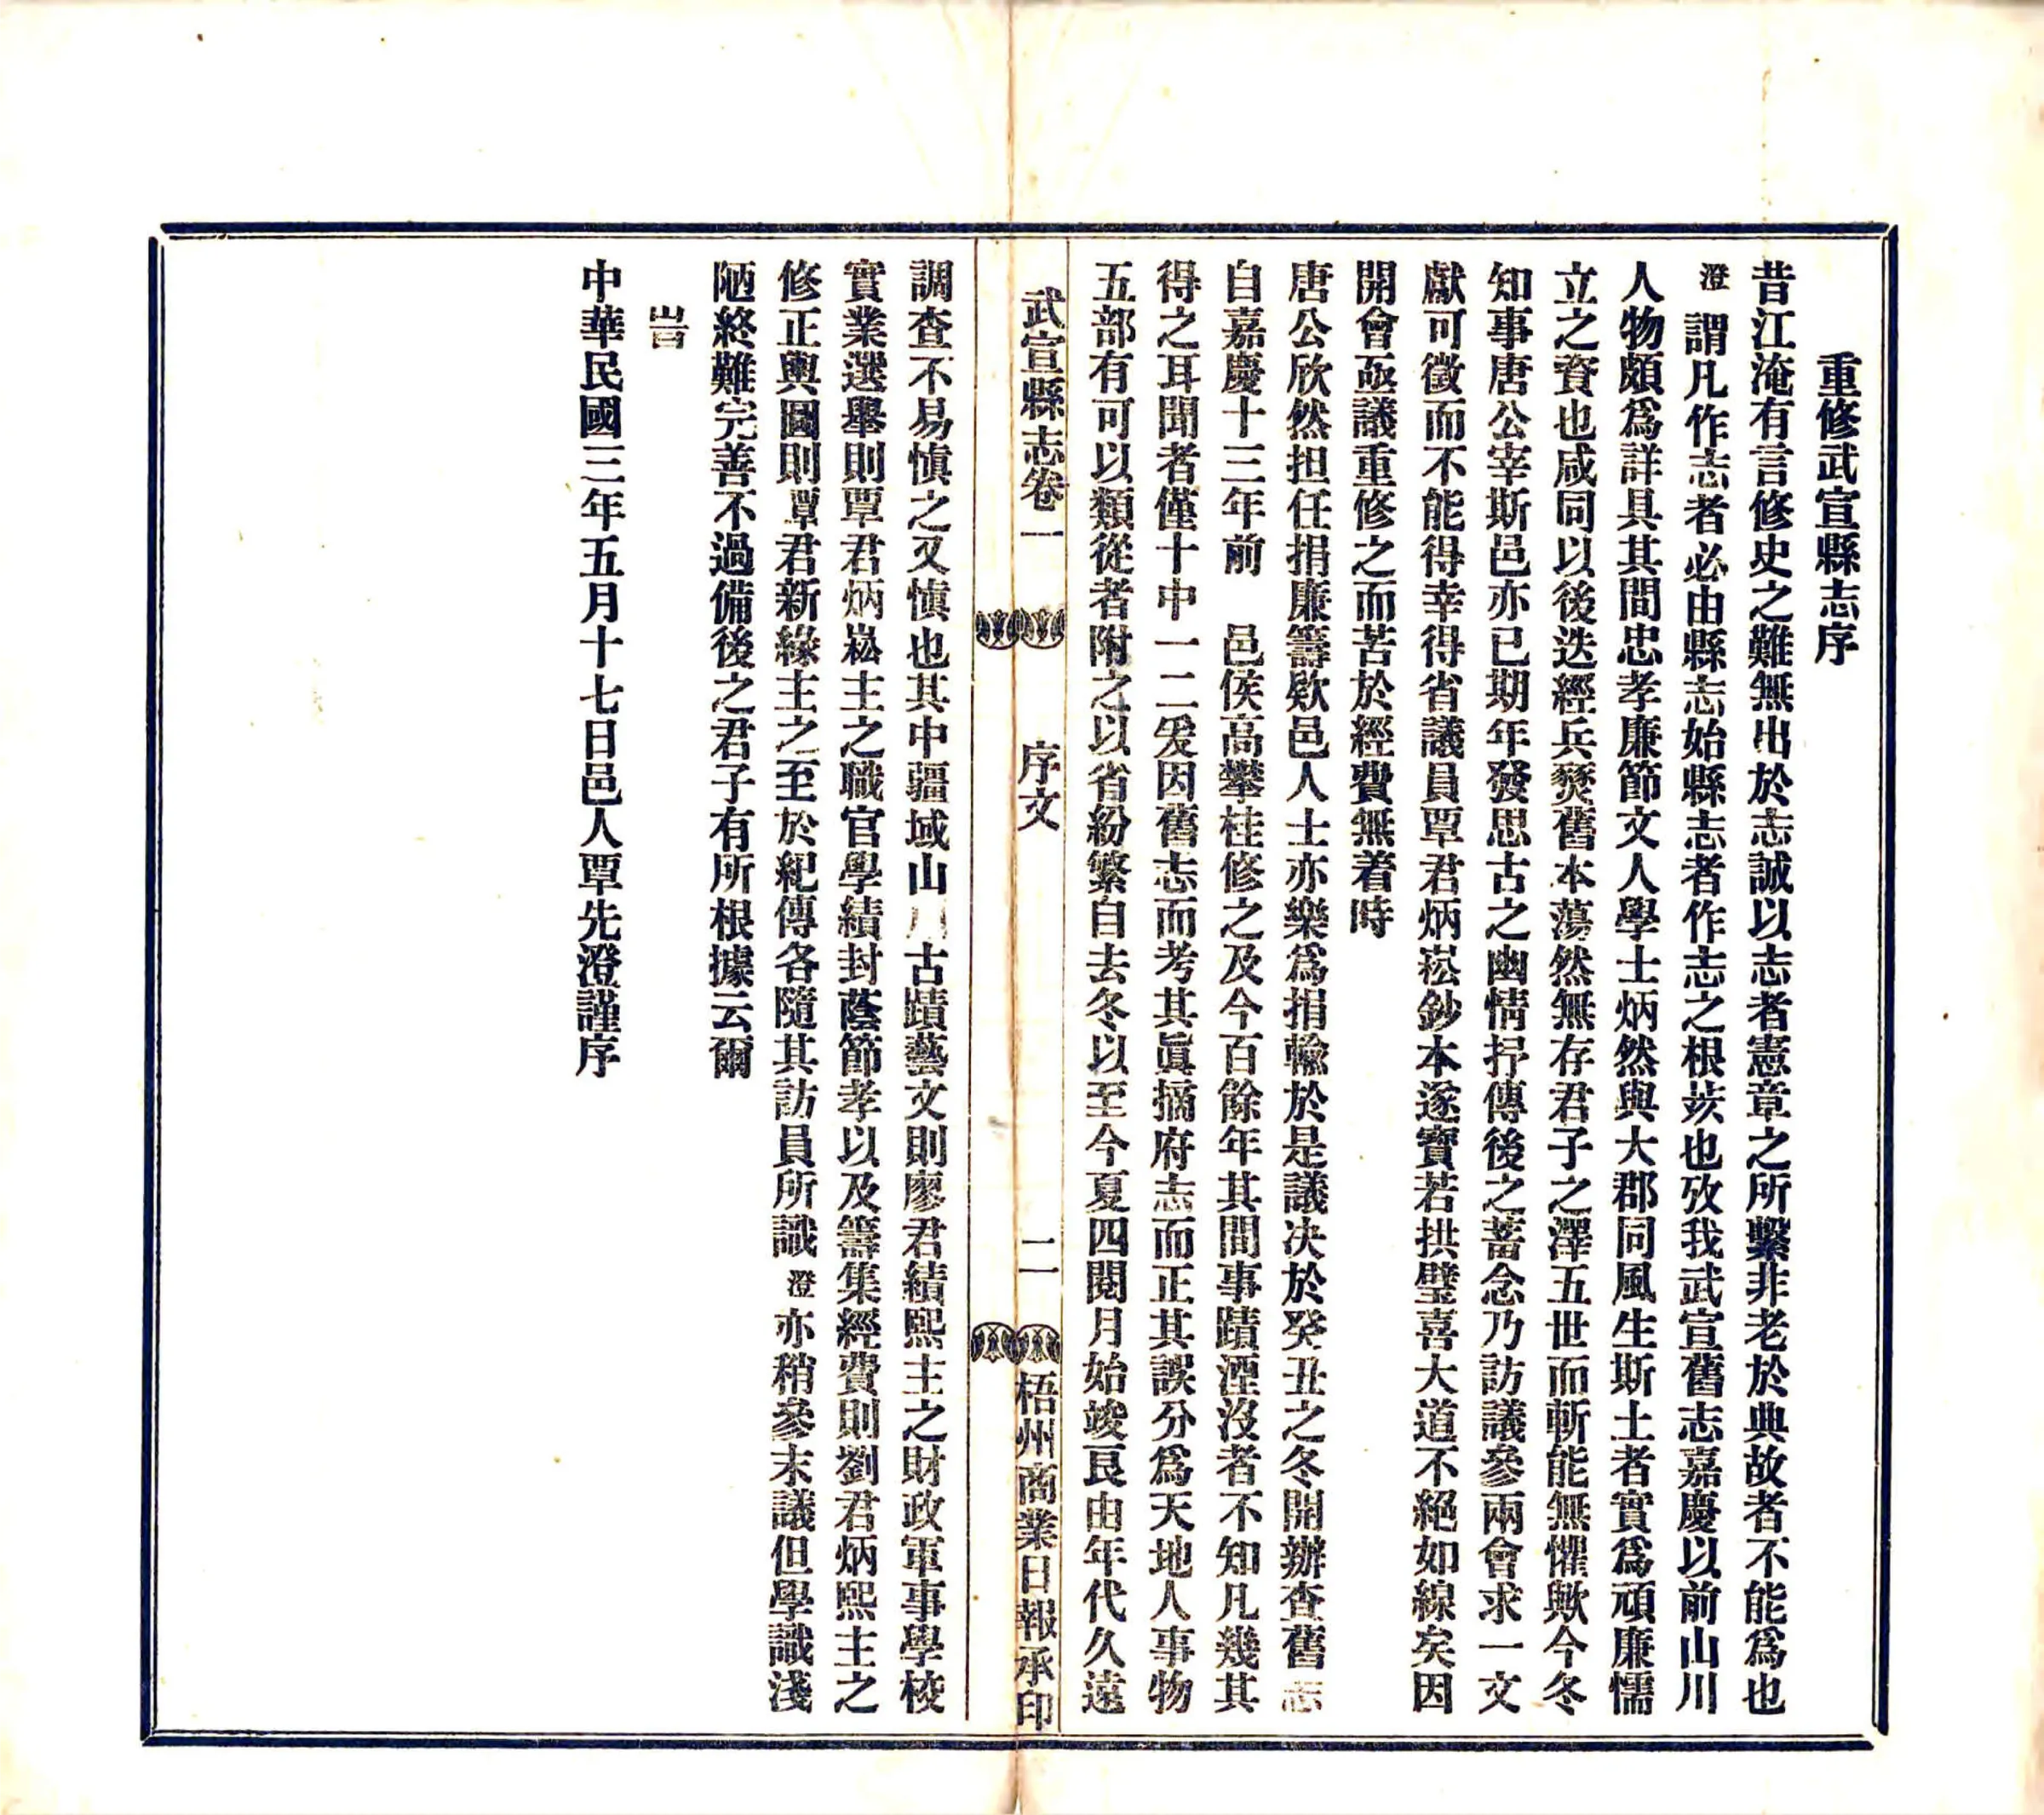 重修武宣縣志序
昔江淹有言修史之難無出於志誠以志者憲章之所繫非老於典故者不能爲也
澄謂凡作志者必由縣志始縣志者作志之根荄也攷我武宣舊志嘉慶以前山川
人物頗爲詳具其間忠孝廉節文人學士炳然與大郡同風生斯土者實爲頑廉懦
立之資也咸同以後迭經兵燹舊本蕩然無存君子之澤五世而斬能無懼歟今冬
知事唐公宰斯邑亦已期年發思古之幽情抒傳後之蓄念乃訪議參兩會求一文
獻可徵而不能得幸得省議員覃君炳崧鈔本遂寶若拱璧喜大道不絕如線矣因
開會亟議重修之而苦於經費無着時
唐公欣然担任捐廉籌欵邑人士亦樂爲捐輸於是議决於癸丑之冬開辦查舊志
自嘉慶十三年前 邑侯高攀桂修之及今百餘年其間事蹟湮沒者不知凡幾其
得之耳聞者僅十中一二爰因舊志而考其眞摘府志而正其誤分爲天地人事物
五部有可以類從者附之以省紛繁自去冬以至今夏四閱月始竣艮由年代久遠
武宣縣志卷一 序文 二 梧州商業日報承印
調查不易愼之又愼也其中疆域山川古蹟藝文則廖君績熙主之財政軍事學校
實業選舉則覃君炳崧主之職官學績封蔭節孝以及籌集經費則劉君炳熙主之
修正輿圖則覃君新緣主之至於紀傳各隨其訪員所識澄亦稍參末議但學識淺
陋終難完善不過備後之君子有所根據云爾
旹
中華民國三年五月十七日邑人覃先澄謹序